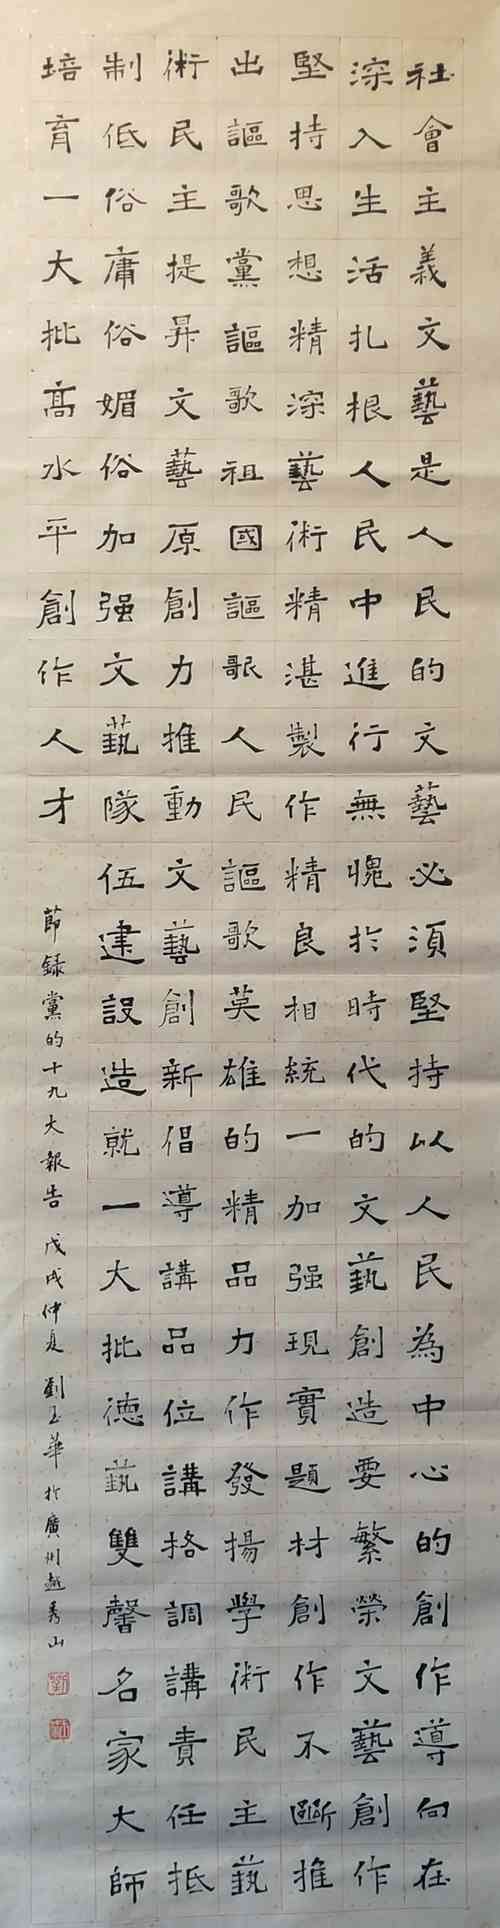 社會主義文藝是人民的文藝必須堅持以人民為中心的創作導向在
深入生活扎根人民中進行無愧於時代的文藝創造要繁榮文藝創作
堅持思想精深藝術精湛製作精良相統一加强現實題材創作不斷推
出謳歌黨謳歌祖國謳歌人民謳歌英雄的精品力作發揚學術民主藝
術民主提昇文藝原創力推動文藝創新倡導講品位講格調講責任抵
制低俗庸俗媚俗加强文藝隊伍建設造就一大批德藝雙馨名家大師
培育一大批高水平創作人才
節録黨的十九大報告 戊戌仲夏 劉玉華於廣州越秀山